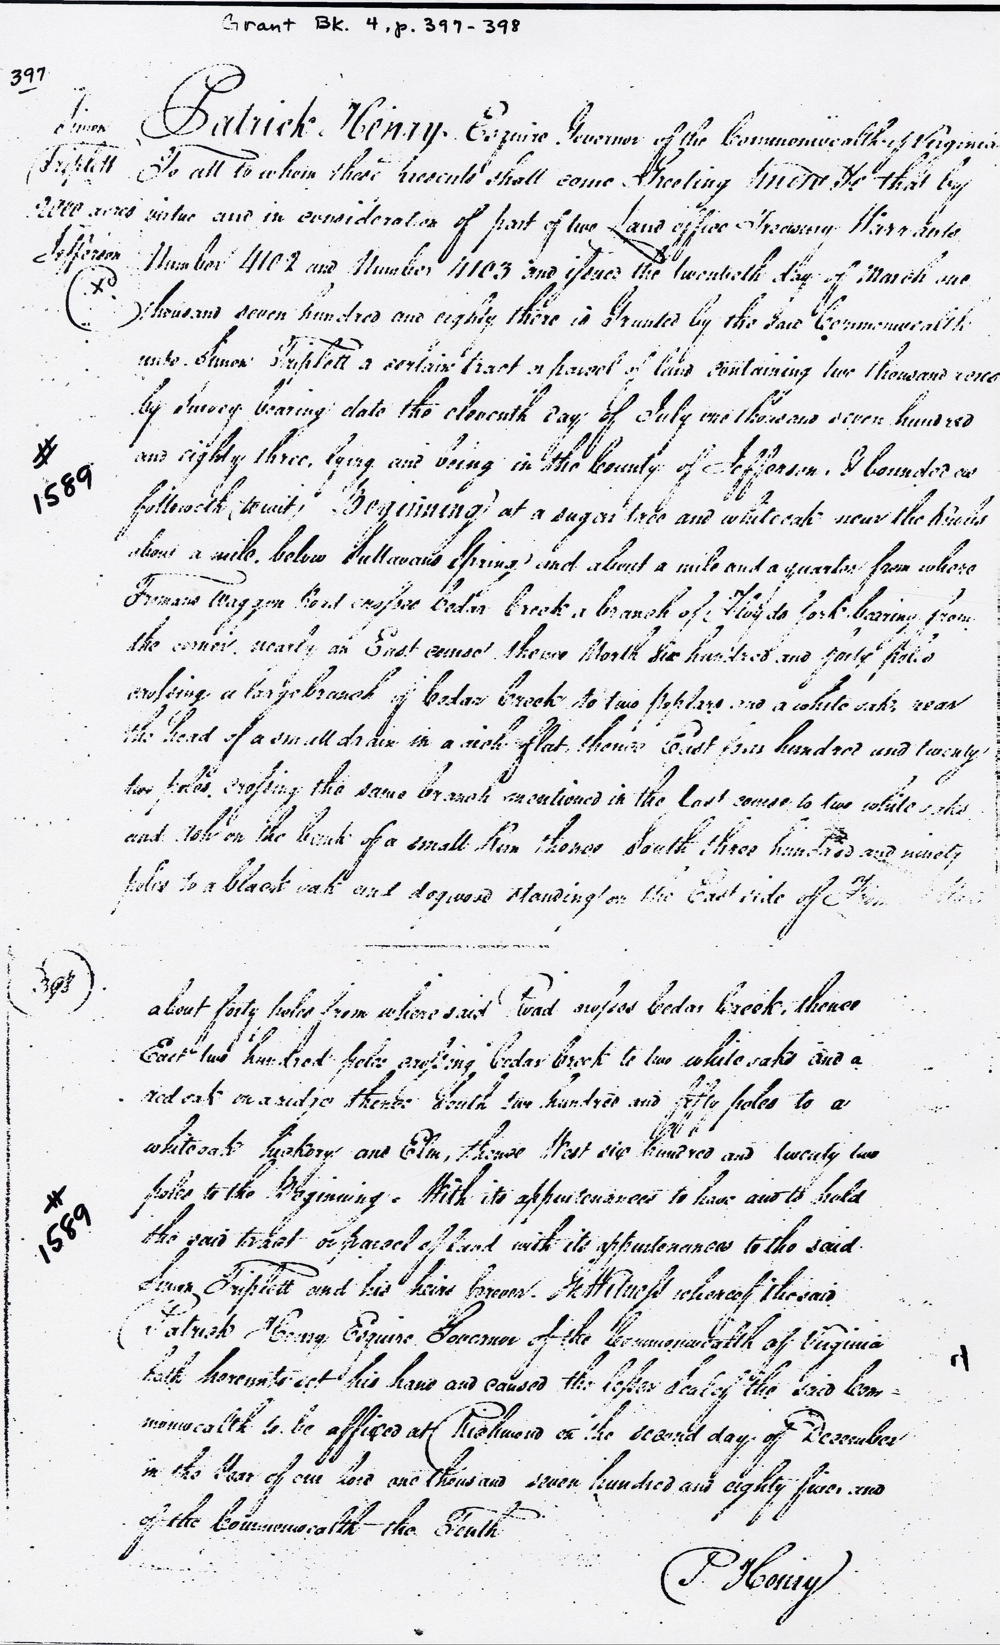 Grant Bk. 4, p. 397-398
397
Simon
Triplett
2000 acres
Jefferson
Patrick Henry Esquire Governor of the Commonwealth of Virginia
To all to whom these presents shall come Greeting Know Ye that by
virtue and in consideration of part of two Land office Treasury Warrants
Number 4102 and Number 4103 and issued the twentieth day of March one
thousand seven hundred and eighty there is Granted by the said Commonwealth
unto Simon Triplett a certain tract or parcel of land containing two thousand acres
by Survey bearing date the eleventh day of July one thousand seven hundred
#
1589
and eighty three, lying and being in the County of Jefferson. & bounded as
followeth (towit) Beginning at a sugar tree and white oak near the
about a mile below Sullavans Spring and about a mile and a quarter from where
Fromans Waggon Road crosses Cedar Creek a branch of Floyds fork bearing from
the corner nearly an East course thence North Six hundred and forty poles
crossing a large branch of Cedar Creek to two poplars and a white oak near
the head of a small drain in a rich flat, thence East four hundred and twenty
two poles, crossing the same branch mentioned in the last course to two white oaks
and Ash on the bank of a small Run thence South three hundred and ninety
poles to a black oak and dogwood standing on the East side of
398
about forty poles from where said Road crosses Cedar Creek, thence
East two hundred poles crossing Cedar Creek to two white oaks and a
red oak on a ridge thence South two hundred and fifty poles to a
white oak hickory and Elm, thence West six hundred and twenty two
#
1589
poles to the Beginning. With its appurtenances to have and to hold
the said tract or parcel of land with its appurtenances to the said
Simon Triplett and his heirs forever. In Witness whereof the said
Patrick Henry Esquire Governor of the Commonwealth of Virginia
hath hereunto set his hand and caused the lesser Seal of the said Com=
monwealth to be affixed at Richmond on the second day of December
in the Year of our lord one thousand seven hundred and eighty five and
of the Commonwealth the Tenth
P Henry